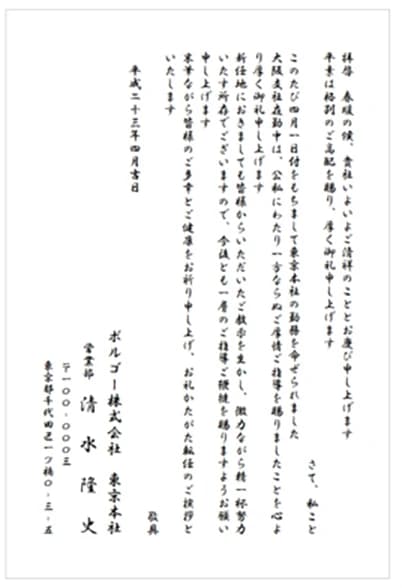 拝啓　春暖の候、貴社いよいよご清祥のこととお慶び申し上げます
平素は格別のご高配を賜り、厚く御礼申し上げます
さて、私こと
このたび四月一日付をもちまして東京本社の勤務を命ぜられました
大阪支社在勤中は、公私にわたり一方ならぬご厚情ご指導を賜りましたことを心よ
り厚く御礼申し上げます
新任地におきましても皆様からいただいたご教示を生かし、微力ながら精一杯努力
いたす所存でございますので、今後とも一層のご指導ご鞭撻を賜りますようお願い
申し上げます
末筆ながら皆様のご多幸とご健康をお祈り申し上げ、お礼かたがた転任のご挨拶と
いたします
敬具
平成二十三年四月吉日
ボルゴー株式会社　東京本社
営業部　清水隆史
〒一〇〇-〇〇〇三
東京都千代田区一ツ橋〇-三-五